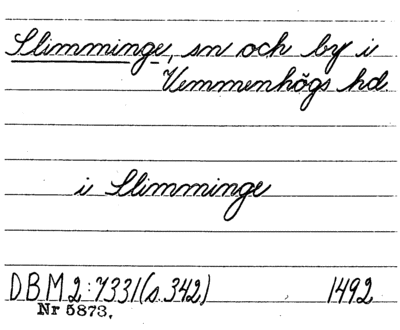 Slimminge, sn och by i
Vemmenhögs hd
i Slimminge
DBM 2:7331 (s. 342) 1492
Nr 5873,